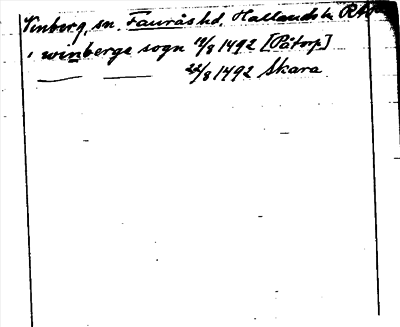 Vinberg, sn. Faurås hd. Hallands l. RA
i winberge sogn 12/8 1492 [Påtorp]
22/8 1492 Skara